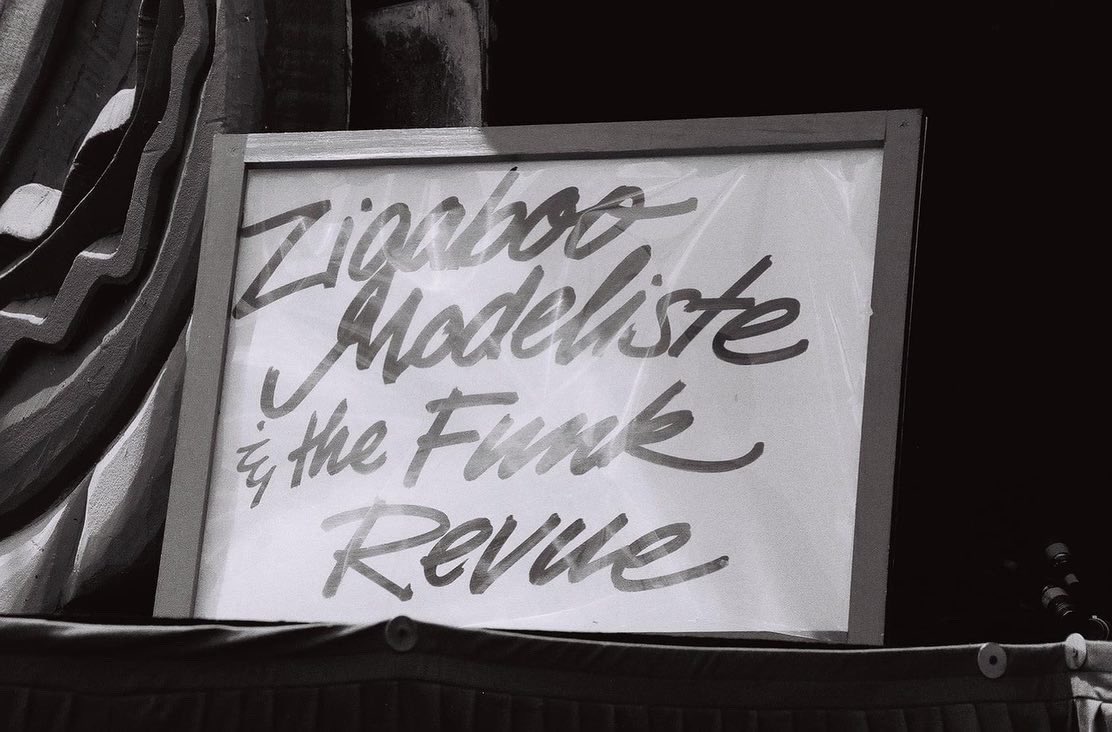 Zigaboo
Modeliste
& the Funk
Revue